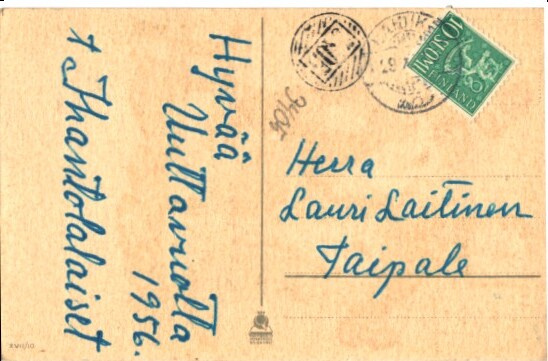 Hyvää
Uuttavuotta
1956.
t Ihantolalaiset
Herra
Lauri Laitinen
Taipale
10 SUOMI
FINLAND
XVII/10